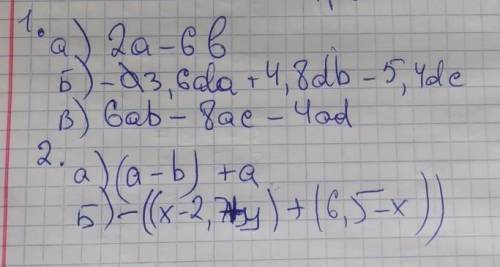 1. а) 2a - 6b
Б) - 3,6da + 4,8db - 5,4dc
В) 6ab - 8ac - 4ad
2. а) (a - b) + a
Б) - ((x - 2,7y) + (6,5 - x))